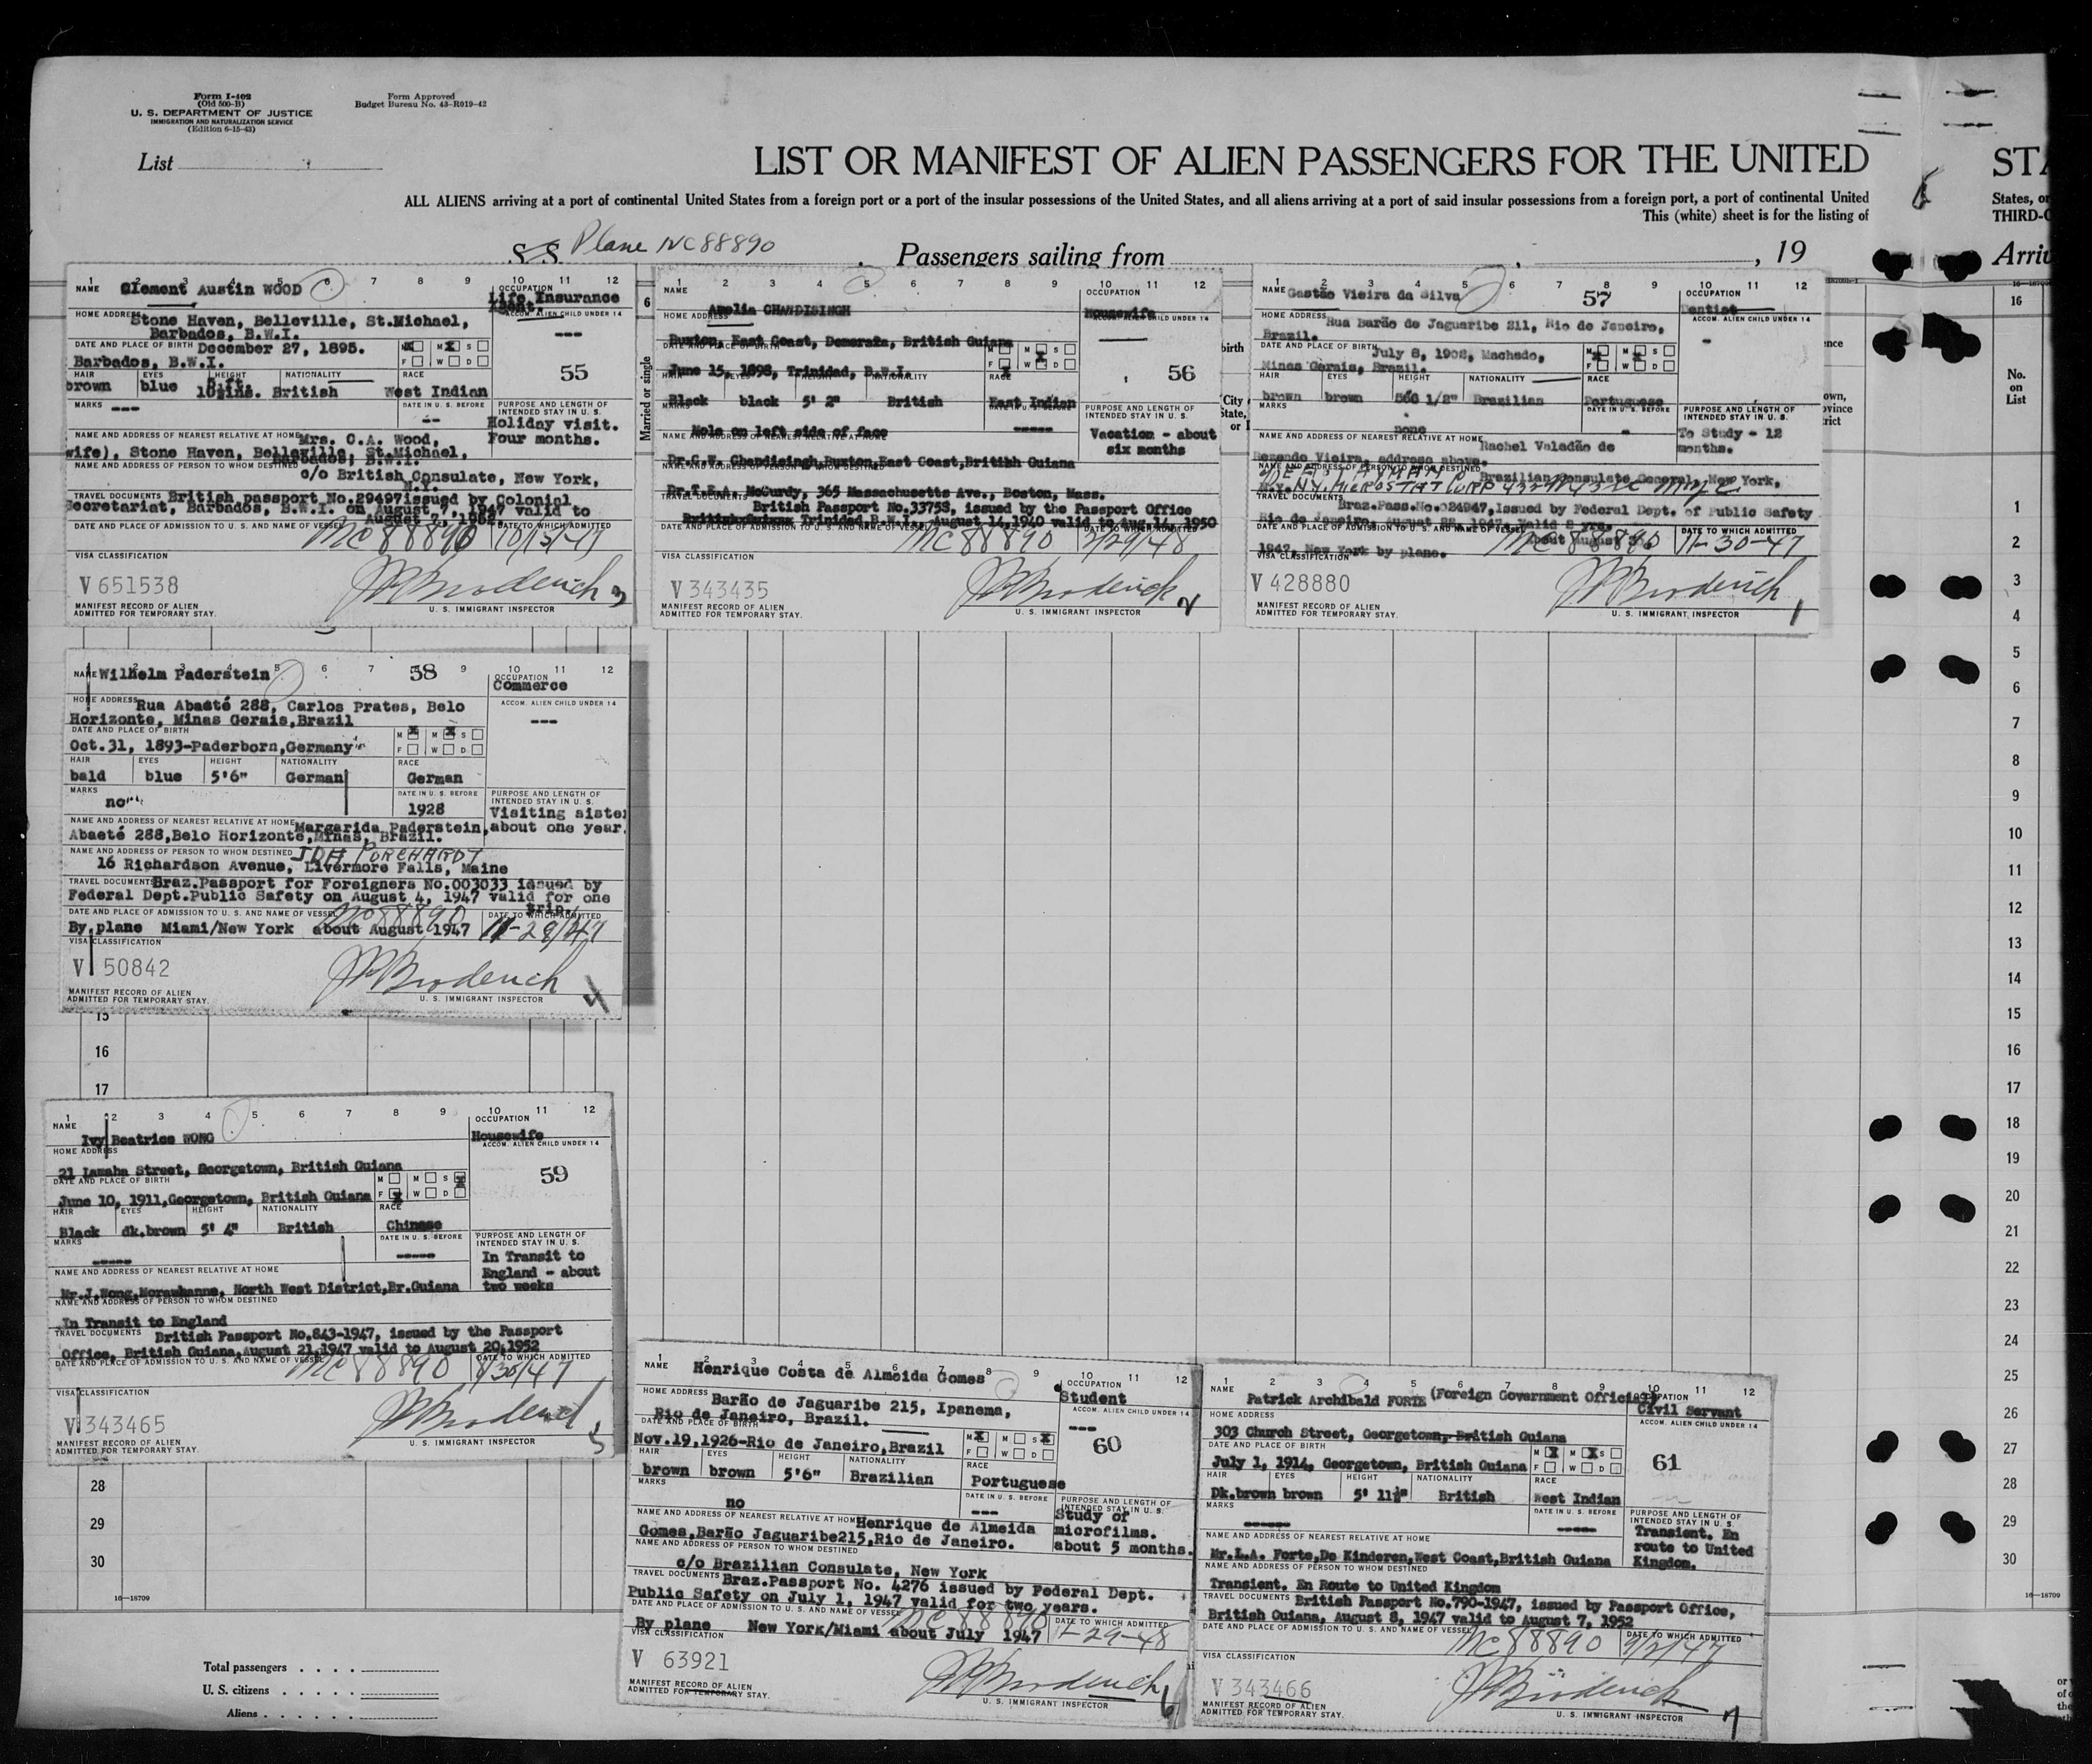 Form I-402
(Old 500-B)
U. S. DEPARTMENT OF JUSTICE
IMMIGRATION AND NATURALIZATION SERVICE
(Edition 6-15-43)
Form Approved
Budget Bureau No. 43-R019-42
List
LIST OR MANIFEST OF ALIEN PASSENGERS FOR THE UNITED
STA
ALL ALIENS arriving at a port of continental United States from a foreign port or a port of the insular possessions of the United States, and all aliens arriving at a port of said insular possessions from a foreign port, a port of continental United
States, or
This (white) sheet is for the listing of
THIRD-C
SS Plane NC88890
Passengers sailing from , 19
Arriv
1 2 3 4 5 6 7 8 9 10 11 12
NAME Clement Austin WOOD
OCCUPATION Life Insurance Agent.
HOME ADDRESS Stone Haven, Belleville, St.Michael,
Barbados, B.W.I.
ACCOM. ALIEN CHILD UNDER 14
---
DATE AND PLACE OF BIRTH December 27, 1895.
Barbados, B.W.I.
M X M X S
F W D
55
HAIR EYES HEIGHT NATIONALITY RACE
brown blue 5 ft. 10½ins. British West Indian
MARKS ---
DATE IN U. S. BEFORE --
PURPOSE AND LENGTH OF INTENDED STAY IN U. S.
Holiday visit.
Four months.
NAME AND ADDRESS OF NEAREST RELATIVE AT HOME Mrs. C.A. Wood,
wife), Stone Haven, Belleville, St.Michael,
Barbados, B.W.I.
NAME AND ADDRESS OF PERSON TO WHOM DESTINED
c/o British Consulate, New York,
N.Y.
TRAVEL DOCUMENTS British passport No.29497issued by Colonial
Secretariat, Barbados, B.W.I. on August 7, 1947 valid to
August 7, 1952
DATE AND PLACE OF ADMISSION TO U. S. AND NAME OF VESSEL
DATE TO WHICH ADMITTED
NC88890
VISA CLASSIFICATION
V 651538
MANIFEST RECORD OF ALIEN
ADMITTED FOR TEMPORARY STAY.
U. S. IMMIGRANT INSPECTOR
3
6
Married or single
1 2 3 4 5 6 7 8 9 10 11 12
NAME Amelia CHANDISINGH
OCCUPATION Housewife
HOME ADDRESS
Buxton, East Coast, Demerara, British Guiana
ACCOM. ALIEN CHILD UNDER 14
DATE AND PLACE OF BIRTH
June 15, 1898, Trinidad, B.W.I.
M M X S
F X W D
56
HAIR EYES HEIGHT NATIONALITY RACE
Black black 5' 2" British East Indian
MARKS
Mole on left side of face
DATE IN U. S. BEFORE -----
PURPOSE AND LENGTH OF INTENDED STAY IN U. S.
Vacation - about
six months
NAME AND ADDRESS OF NEAREST RELATIVE AT HOME
Dr.C.W. Chandisingh,Buxton,East Coast,British Guiana
NAME AND ADDRESS OF PERSON TO WHOM DESTINED
Dr.T.E.A. McCurdy, 365 Massachusetts Ave., Boston, Mass.
TRAVEL DOCUMENTS
British Passport No.33758, issued by the Passport Office
Trinidad B.W.I., August 14,1940 valid to Aug.14, 1950
DATE AND PLACE OF ADMISSION TO U. S. AND NAME OF VESSEL
DATE TO WHICH ADMITTED
NC88890 2/29/48
VISA CLASSIFICATION
V 343435
MANIFEST RECORD OF ALIEN
ADMITTED FOR TEMPORARY STAY.
U. S. IMMIGRANT INSPECTOR
2
1 2 3 4 5 6 7 8 9 10 11 12
NAME Gastão Vieira da Silva
57
OCCUPATION Dentist
HOME ADDRESS Rua Barão de Jaguaribe 211, Rio de Janeiro,
Brazil.
ACCOM. ALIEN CHILD UNDER 14
-
DATE AND PLACE OF BIRTH July 8, 1908, Machado,
Minas Gerais, Brazil.
M X M X S
F W D
HAIR EYES HEIGHT NATIONALITY RACE
brown brown 1/2" Brazilian Portuguese
MARKS none
DATE IN U. S. BEFORE -
PURPOSE AND LENGTH OF INTENDED STAY IN U. S.
To Study - 12
months.
NAME AND ADDRESS OF NEAREST RELATIVE AT HOME Rachel Valadão de
Rezende Vieira, address above.
NAME AND ADDRESS OF PERSON TO WHOM DESTINED
Brazilian Consulate General, New York,
N.Y. MICROSTAT CORP
TRAVEL DOCUMENTS Braz.Pass.No.024947,Issued by Federal Dept. of Public Safety
Rio de Janeiro, August 22, 1947, Valid 2 yrs.
DATE AND PLACE OF ADMISSION TO U. S. AND NAME OF VESSEL
DATE TO WHICH ADMITTED
about August
1947, New York by plane.
NC88890 11-30-47
VISA CLASSIFICATION
V 428880
MANIFEST RECORD OF ALIEN
ADMITTED FOR TEMPORARY STAY.
U. S. IMMIGRANT INSPECTOR
1
16
No.
on
List
1 2 3 4 5 6 7 8 9 10 11 12
NAME Wilhelm Paderstein
58
OCCUPATION
Commerce
HOME ADDRESS Rua Abaeté 288, Carlos Prates, Belo
Horizonte, Minas Gerais,Brazil
ACCOM. ALIEN CHILD UNDER 14
---
DATE AND PLACE OF BIRTH
Oct.31, 1893-Paderborn,Germany
M X M X S
F W D
HAIR EYES HEIGHT NATIONALITY RACE
bald blue 5'6" German German
MARKS
no
DATE IN U. S. BEFORE
1928
PURPOSE AND LENGTH OF INTENDED STAY IN U. S.
Visiting sister
about one year.
NAME AND ADDRESS OF NEAREST RELATIVE AT HOME Margarida Paderstein,
Abaeté 288,Belo Horizonte,Minas, Brazil.
NAME AND ADDRESS OF PERSON TO WHOM DESTINED
16 Richardson Avenue, Livermore Falls, Maine
TRAVEL DOCUMENTS Braz.Passport for Foreigners No.003033 issued by
Federal Dept.Public Safety on August 4, 1947 valid for one
trip.
DATE AND PLACE OF ADMISSION TO U. S. AND NAME OF VESSEL
DATE TO WHICH ADMITTED
NC88890
By plane Miami/New York about August 1947
VISA CLASSIFICATION
V 50842
MANIFEST RECORD OF ALIEN
ADMITTED FOR TEMPORARY STAY.
U. S. IMMIGRANT INSPECTOR
4
15
16
17
1 2 3 4 5 6 7 8 9 10 11 12
NAME
Ivy Beatrice WONG
OCCUPATION
Housewife
HOME ADDRESS
21 Lamaha Street, Georgetown, British Guiana
ACCOM. ALIEN CHILD UNDER 14
DATE AND PLACE OF BIRTH
June 10, 1911,Georgetown, British Guiana
M M S X
F X W D
59
HAIR EYES HEIGHT NATIONALITY RACE
Black dk.brown 5' 4" British Chinese
MARKS
-----
DATE IN U. S. BEFORE
-----
PURPOSE AND LENGTH OF INTENDED STAY IN U. S.
In Transit to
England - about
two weeks
NAME AND ADDRESS OF NEAREST RELATIVE AT HOME
Mr.J.Wong,Morawhanna, North West District,Br.Guiana
NAME AND ADDRESS OF PERSON TO WHOM DESTINED
In Transit to England
TRAVEL DOCUMENTS British Passport No.843-1947, issued by the Passport
Office, British Guiana,August 21,1947 valid to August 20,1952
DATE AND PLACE OF ADMISSION TO U. S. AND NAME OF VESSEL
DATE TO WHICH ADMITTED
NC88890
VISA CLASSIFICATION
V 343465
MANIFEST RECORD OF ALIEN
ADMITTED FOR TEMPORARY STAY.
U. S. IMMIGRANT INSPECTOR
5
28
29
30
16-18709
1 2 3 4 5 6 7 8 9 10 11 12
NAME Henrique Costa de Almeida Gomes
OCCUPATION
Student
HOME ADDRESS Barão de Jaguaribe 215, Ipanema,
Rio de Janeiro, Brazil.
ACCOM. ALIEN CHILD UNDER 14
---
DATE AND PLACE OF BIRTH
Nov.19,1926-Rio de Janeiro,Brazil
M X M S X
F W D
60
HAIR EYES HEIGHT NATIONALITY RACE
brown brown 5'6" Brazilian Portuguese
MARKS
no
DATE IN U. S. BEFORE
---
PURPOSE AND LENGTH OF INTENDED STAY IN U. S.
Study of
microfilms.
about 5 months.
NAME AND ADDRESS OF NEAREST RELATIVE AT HOME Henrique de Almeida
Gomes,Barão Jaguaribe215,Rio de Janeiro.
NAME AND ADDRESS OF PERSON TO WHOM DESTINED
c/o Brazilian Consulate, New York
TRAVEL DOCUMENTS Braz.Passport No. 4276 issued by Federal Dept.
Public Safety on July 1, 1947 valid for two years.
DATE AND PLACE OF ADMISSION TO U. S. AND NAME OF VESSEL
DATE TO WHICH ADMITTED
NC88890
By plane New York/Miami about July 1947 1-29-48
VISA CLASSIFICATION
V 63921
MANIFEST RECORD OF ALIEN
ADMITTED FOR TEMPORARY STAY.
U. S. IMMIGRANT INSPECTOR
6
1 2 3 4 5 6 7 8 9 10 11 12
NAME Patrick Archibald FORTE (Foreign Government Official)
OCCUPATION
Civil Servant
HOME ADDRESS
303 Church Street, Georgetown, British Guiana
ACCOM. ALIEN CHILD UNDER 14
DATE AND PLACE OF BIRTH
July 1, 1914, Georgetown, British Guiana
M X M X S
F W D
61
HAIR EYES HEIGHT NATIONALITY RACE
Dk.brown brown 5' 11½" British West Indian
MARKS
-----
DATE IN U. S. BEFORE
-----
PURPOSE AND LENGTH OF INTENDED STAY IN U. S.
Transient. En
route to United
Kingdom.
NAME AND ADDRESS OF NEAREST RELATIVE AT HOME
Mr.L.A. Forte,De Kinderen,West Coast,British Guiana
NAME AND ADDRESS OF PERSON TO WHOM DESTINED
Transient. En Route to United Kingdom
TRAVEL DOCUMENTS British Passport No.790-1947, issued by Passport Office,
British Guiana, August 8, 1947 valid to August 7, 1952
DATE AND PLACE OF ADMISSION TO U. S. AND NAME OF VESSEL
DATE TO WHICH ADMITTED
NC88890 9/2/47
VISA CLASSIFICATION
V 343466
MANIFEST RECORD OF ALIEN
ADMITTED FOR TEMPORARY STAY.
U. S. IMMIGRANT INSPECTOR
7
Total passengers . . . .
U. S. citizens . . . . .
Aliens . . . . . .
1
2
3
4
5
6
7
8
9
10
11
12
13
14
15
16
17
18
19
20
21
22
23
24
25
26
27
28
29
30
16-18709